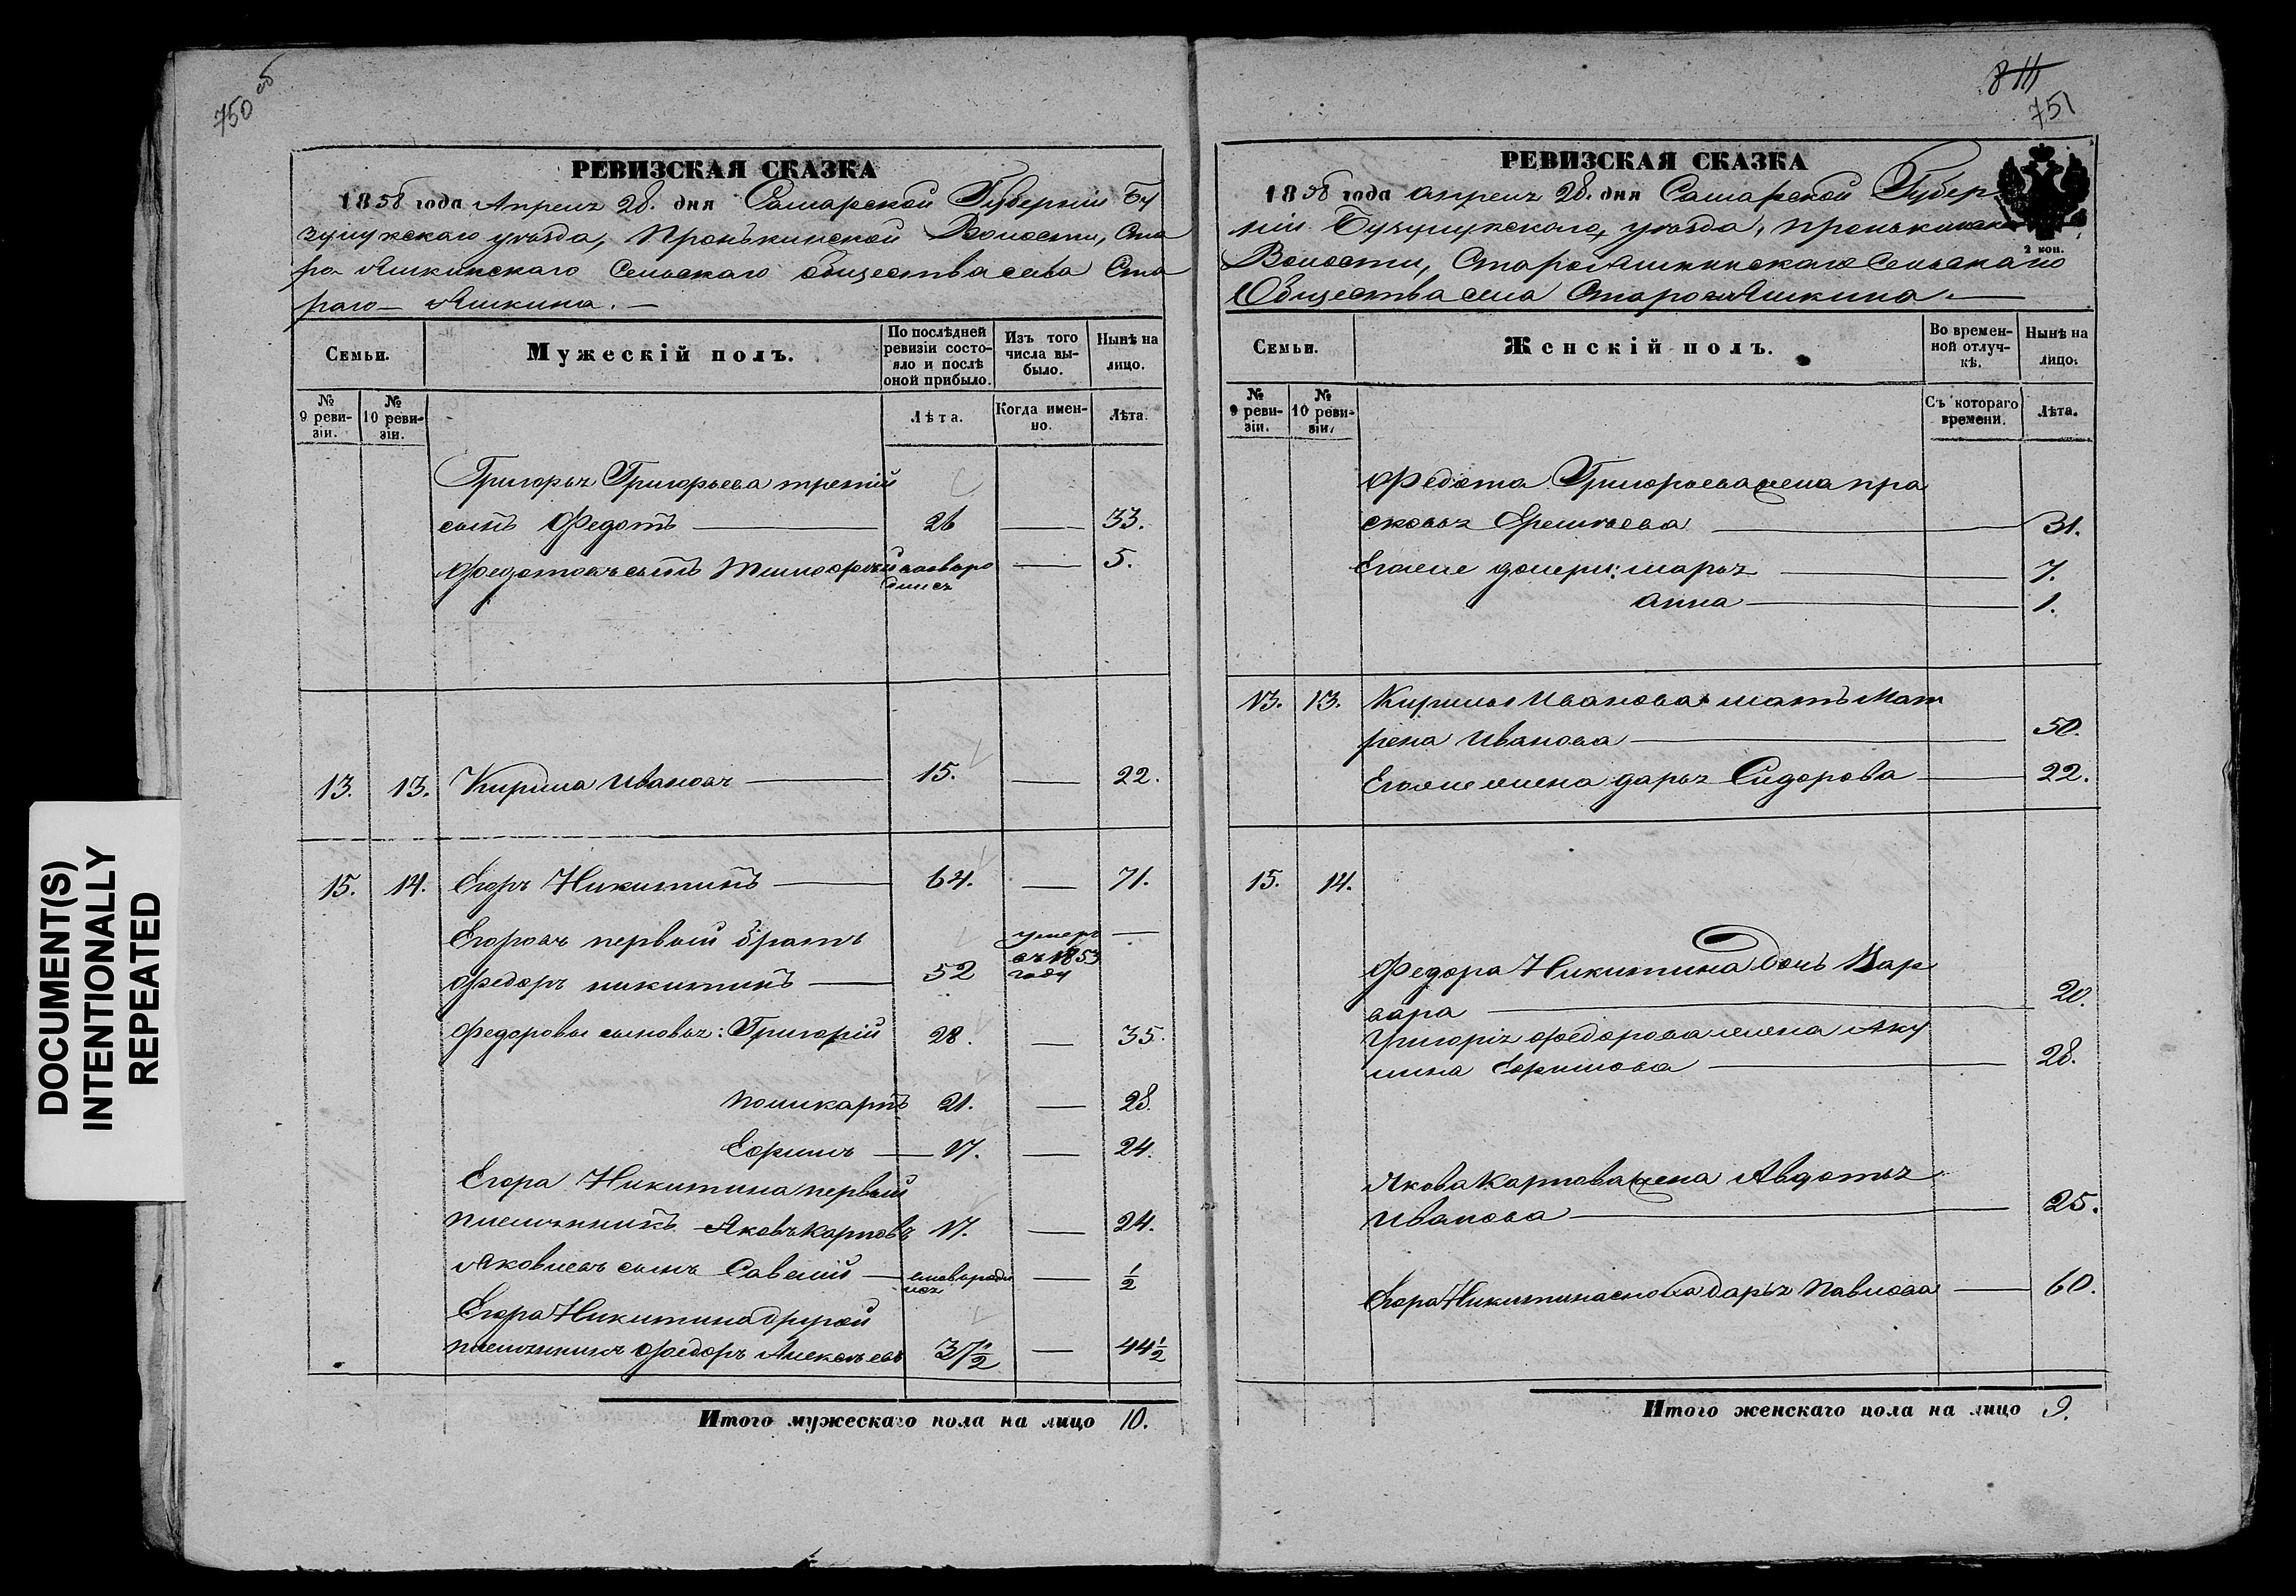 DOCUMENT(S)
INTENTIONALLY
REPEATED
750 об
РЕВИЗСКАЯ СКАЗКА
1858 года Апреля 28. дня Самарской Губернiи Бу
зулукскаго уѣзда, Пронькинской Волости, Ста
ро Яшкинскаго Сельскаго общества села Ста
раго Яшкина.
Семьи.
Мужескiй полъ.
По послѣдней ревизiи состояло и послѣ оной прибыло.
Изъ того числа выбыло.
Нынѣ на лицо.
№ 9 ревизiи.
№ 10 ревизiи.
Лѣта.
Когда именно.
Лѣта.
Григорья Григорьева третiй
сынъ Федотъ 26 33.
Федотовъ сынъ Тимофей новоро 5.
дился
13. 13. Кирила Ивановъ 15. 22.
15. 14. Егоръ Никитинъ 64. 71.
Егоровъ первый братъ умеръ
въ 1853
Федоръ Никитинъ 52 году
Федоровы сыновья: Григорiй 28. 35.
Поликарпъ 21. 28.
Ефимъ 17. 24.
Егора Никитина первый
племянникъ Яковъ Карповъ 17. 24.
Яковлевъ сынъ Савелiй новороди ½
лся
Егора Никитина другой
племянникъ Федоръ Алексѣевъ 37½ 44½
Итого мужескаго пола на лицо 10.
811
751
РЕВИЗСКАЯ СКАЗКА
1858 года апреля 28. дня Самарской Губер
нiи Бузулукскаго уѣзда, Пронькинской
2 коп.
Волости, Старояшкинскаго Сельскаго
Общества села Старого Яшкина.
Семьи.
Женскiй полъ.
Во временной отлучкѣ.
Нынѣ на лицо.
№ 9 ревизiи.
№ 10 ревизiи.
Съ котораго времени.
Лѣта.
Федота Григорьева жена Пра
сковья Еремѣева 31.
Его же дочери: Марья 7.
Анна 1.
13. 13. Кирилы Иванова мать Мат
рена Иванова 50.
Его же жена Дарья Сидорова 22.
15. 14.
Федора Никитина дочь Вар
вара 20.
Григорiя Федорова жена Аку
лина Ефимова 28.
Якова Карпова жена Авдотья
Иванова 25.
Егора Никитина сноха Дарья Павлова 60.
Итого женскаго пола на лицо 9.